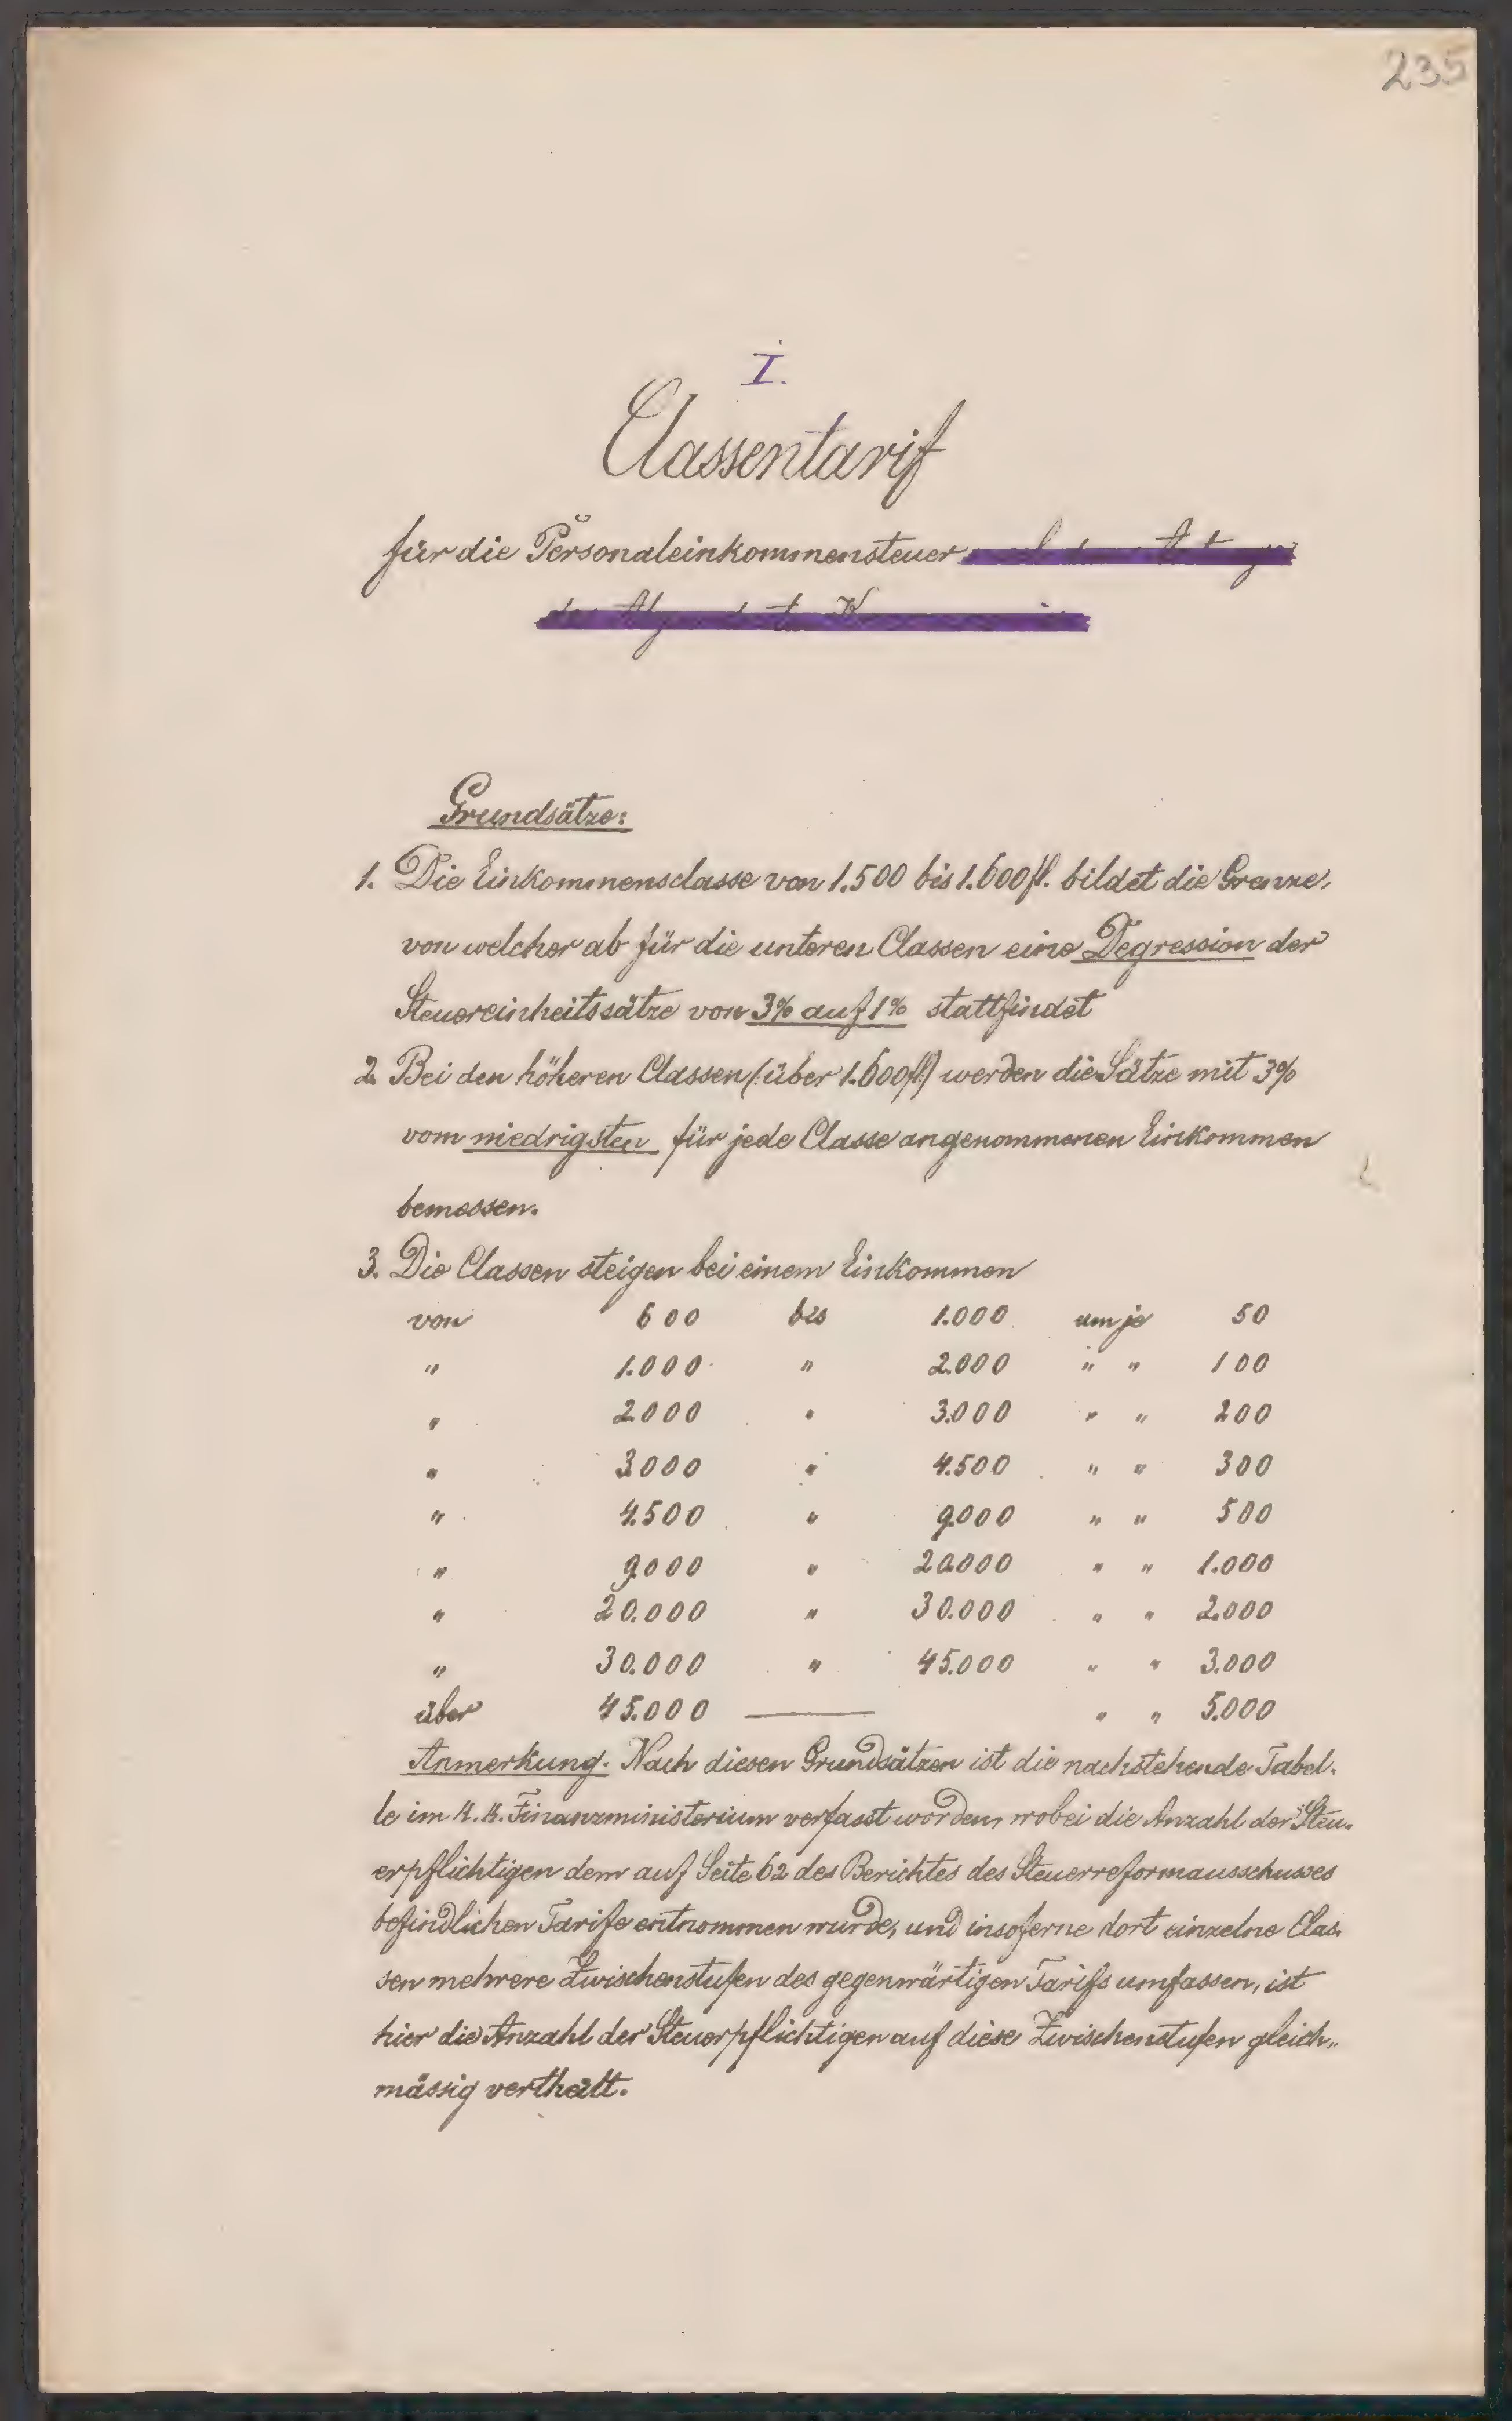 235
I.
Classentarif
für die Personaleinkommensteuer
Grundsätze:
1. Die Einkommensclasse von 1.500 bis 1.600 fl. bildet die Grenze,
von welcher ab für die unteren Classen eine Degression der
Steuereinheitssätze von 3% auf 1% stattfindet
2. Bei den höheren Classen (:über 1.600 fl:) werden die Sätze mit 3%
vom niedrigsten für jede Classe angenommenen Einkommen
bemessen.
3. Die Classen steigen bei einem Einkommen
von 600 bis 1.000 um je 50
" 1.000 " 2.000 " " 100
" 2.000 " 3.000 " " 200
" 3.000 " 4.500 " " 300
" 4.500 " 9.000 " " 500
" 9.000 " 20.000 " " 1.000
" 20.000 " 30.000 " " 2.000
" 30.000 " 45.000 " " 3.000
über 45.000 — " " 5.000
Anmerkung. Nach diesen Grundsätzen ist die nachstehende Tabel-
le im K. K. Finanzministerium verfasst worden, wobei die Anzahl der Steu-
erpflichtigen dem auf Seite 62 des Berichtes des Steuerreformausschusses
befindlichen Tarife entnommen wurde, und insoferne dort einzelne Clas-
sen mehrere Zwischenstufen des gegenwärtigen Tarifs umfassen, ist
hier die Anzahl der Steuerpflichtigen auf diese Zwischenstufen gleich-
mässig vertheilt.